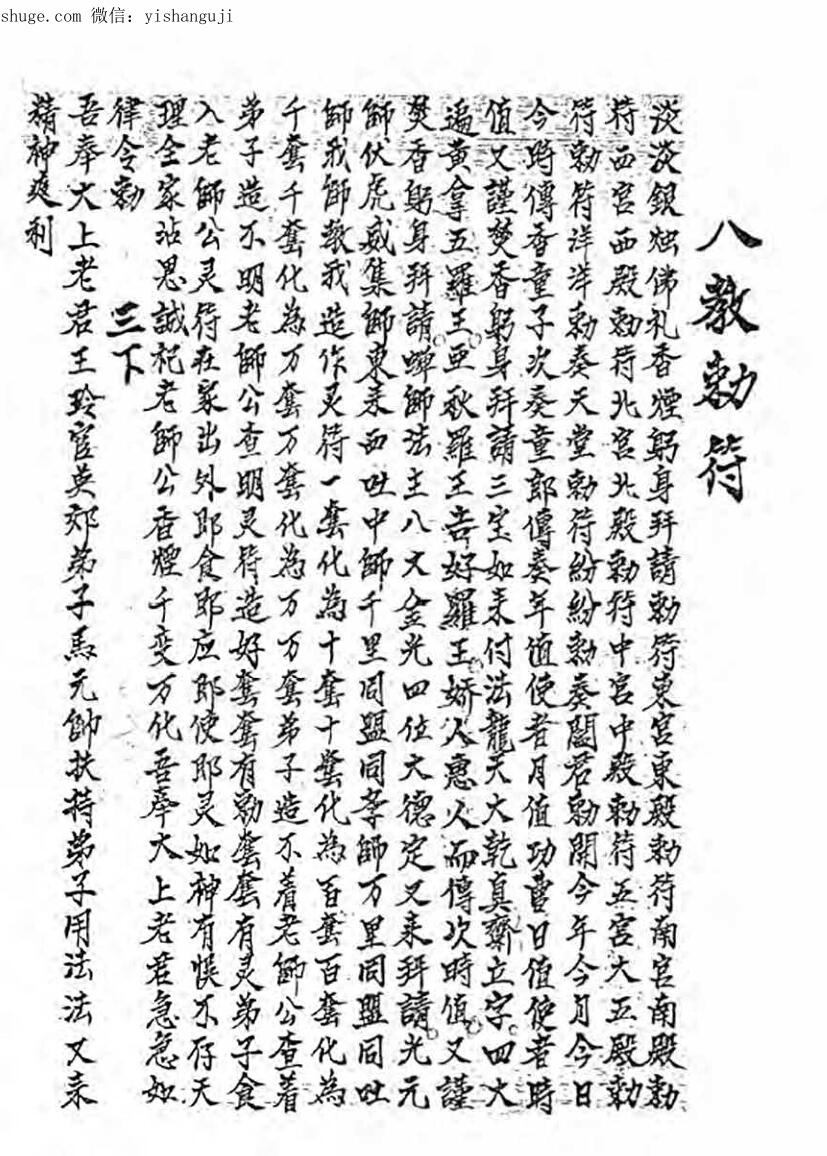 shuge.com 微信：yishanguji
八教勅符
淡淡銀烛佛礼香煙躬身拜請勅符東宮東殿勅符南宮南殿勅
符西宮西殿勅符北宮北殿勅符中宮中殿勅符五宮大五殿勅
符勅符洋洋勅奏天堂勅符紛紛勅奏閻君勅開今年今月今日
今時傳香童子次奏童郎傳奏年值使者月值功曹日值使者時
值又謹焚香躬身拜請三宝如来付法龍天大乾真齋立字四大
遍黃拿五羅王亜秋羅王吉好羅王嬌人惠人而傳次時值又謹
焚香躬身拜請蟬師法主八大金光四位大德定又来拜請光元
師伏虎威集師東来西吐中師千里同盟同孝師万里同盟同吐
師我師教我造作灵符一套化為十套十套化為百套百套化為
千套千套化為万套万套化為万万套弟子造不着老師公查着
弟子造不明老師公查明灵符造好套套有勅套套有灵弟子食
入老師公灵符在家出外即食即应即使即灵如神有悞不存天
理全家沾恩誠祀老師公香煙千变万化吾奉大上老君急急如
律令勅 三下
吾奉大上老君王玲官英郊弟子馬元帥扶持弟子用法法又来
精神爽利